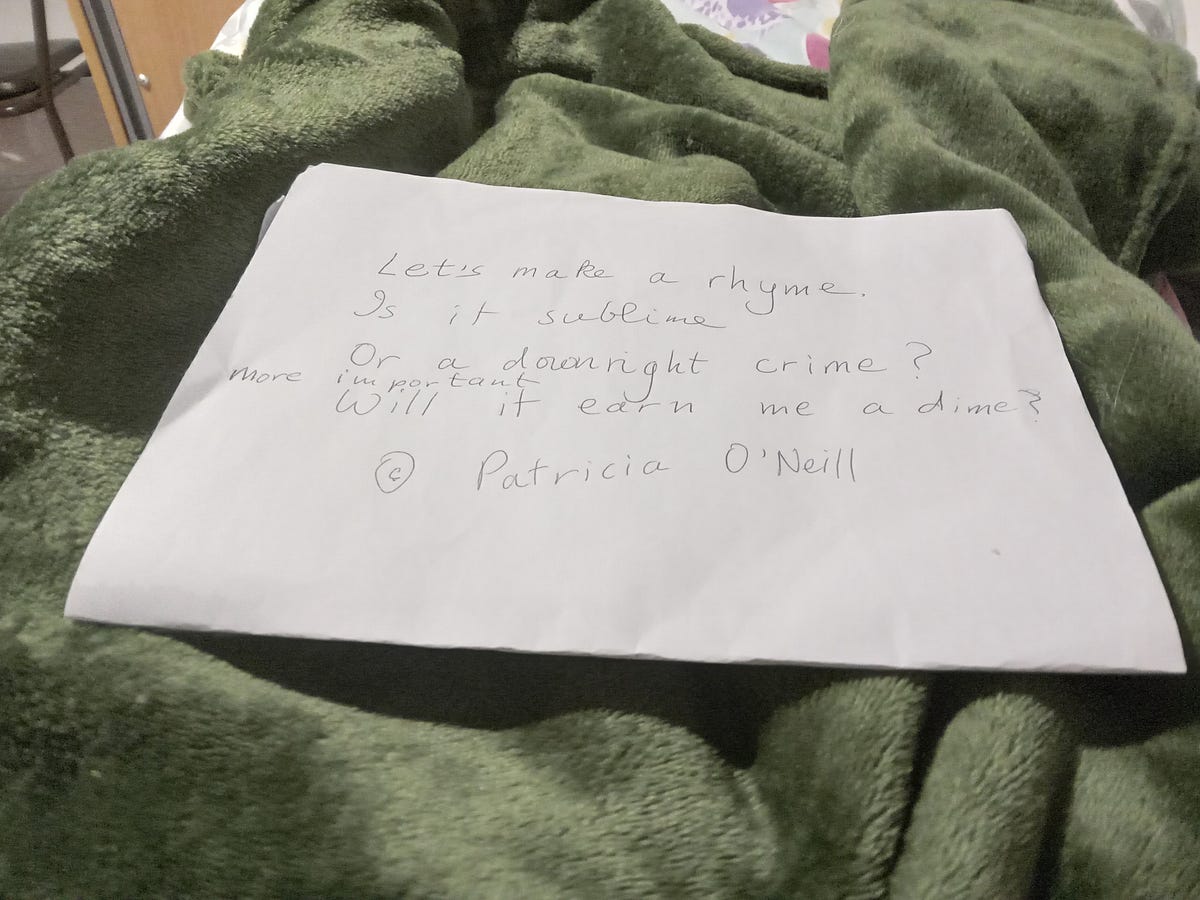 Let's make a rhyme.
Is it sublime
Or a downright crime?
more important
Will it earn me a dime?
© Patricia O'Neill